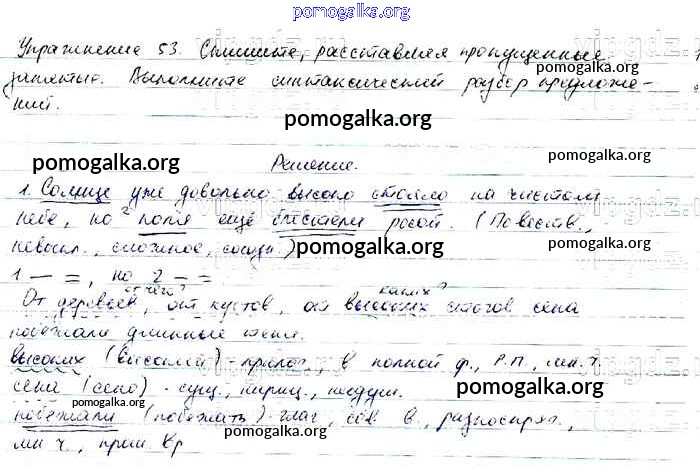 pomogalka.org
Упражнение 53. Спишите, расставляя пропущенные
pomogalka.org
запятые. Выполните синтаксический разбор предложе-
ний.
pomogalka.org
pomogalka.org
Решение.
pomogalka.org
1. Солнце уже довольно высоко стояло на чистом
pomogalka.org
небе, но 2 поля ещё блестели росой. (Повеств.,
невоскл., сложное, союзн.)
pomogalka.org
pomogalka.org
1 — =, но 2 — =
от чего? каких?
От деревьев, от кустов, от высоких стогов сена
побежали длинные тени.
pomogalka.org
высоких (высокий) - прилаг., в полной ф., Р.П., мн. ч.
сена (сено) - сущ., нариц., неодуш.
pomogalka.org
pomogalka.org
побежали (побежать) - глаг., сов. в., разноспряг.,
pomogalka.org
мн. ч., прош. вр
pomogalka.org